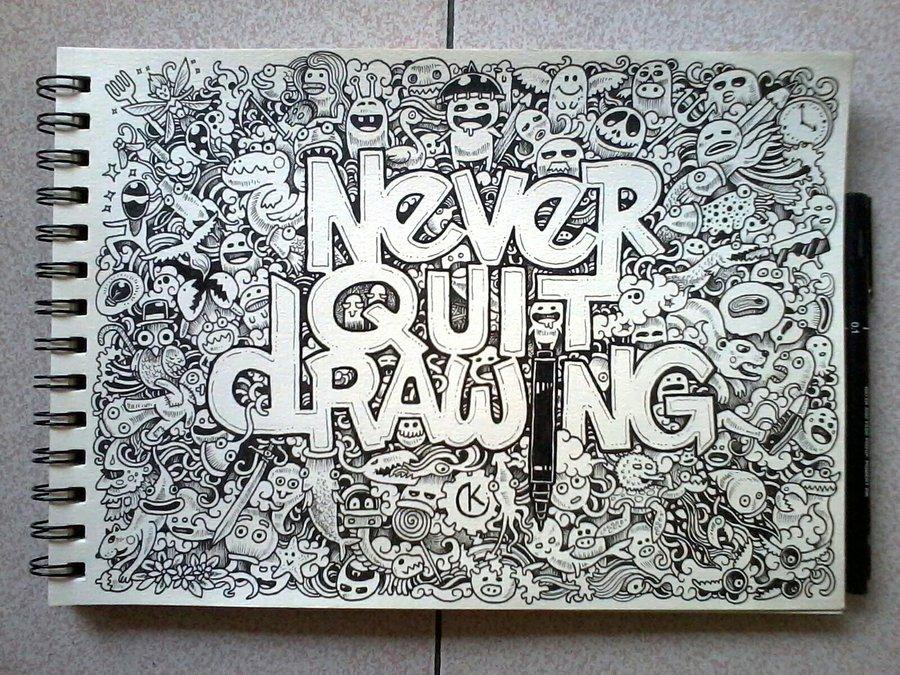 NeveR
QUIT
dRAWING
CK